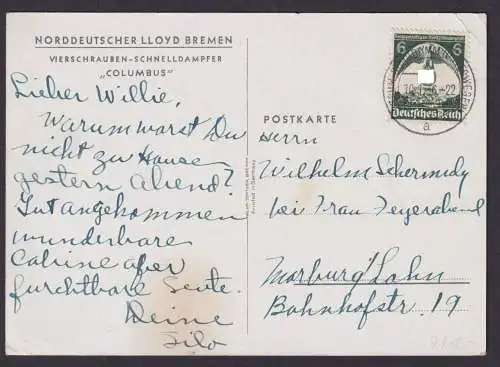 NORDDEUTSCHER LLOYD BREMEN
VIERSCHRAUBEN-SCHNELLDAMPFER
„COLUMBUS"
Lieber Willie,
Warum warst Du
nicht zu Hause
gestern Abend?
Gut angekommen
wunderbare
Cabine aber
furchtbare Leute.
Deine
POSTKARTE
Herrn
Wilhelm
bei Frau Feyerabend
Marburg/Lahn
Bahnhofstr. 19
6 6
Deutsches Reich
a